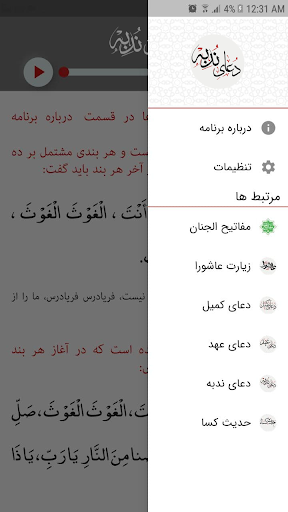 4% 12:31 AM
دعای ندبه
درباره برنامه
تنظیمات
مرتبط ها
مفاتیح الجنان
زیارت عاشورا
دعای کمیل
دعای عهد
دعای ندبه
حدیث کسا
ندبه
ها در قسمت درباره برنامه
است و هر بندی مشتمل بر ده
آخر هر بند باید گفت:
أَنْتَ ، الْغَوْثَ الْغَوْثَ ،
نیست، فریادرس فریادرس، ما را از
ده است که در آغاز هر بند
أَنْتَ، الْغَوْثَ الْغَوْثَ، صَلِّ
مِنَ النَّارِ يَا رَبِّ، يَا ذَا